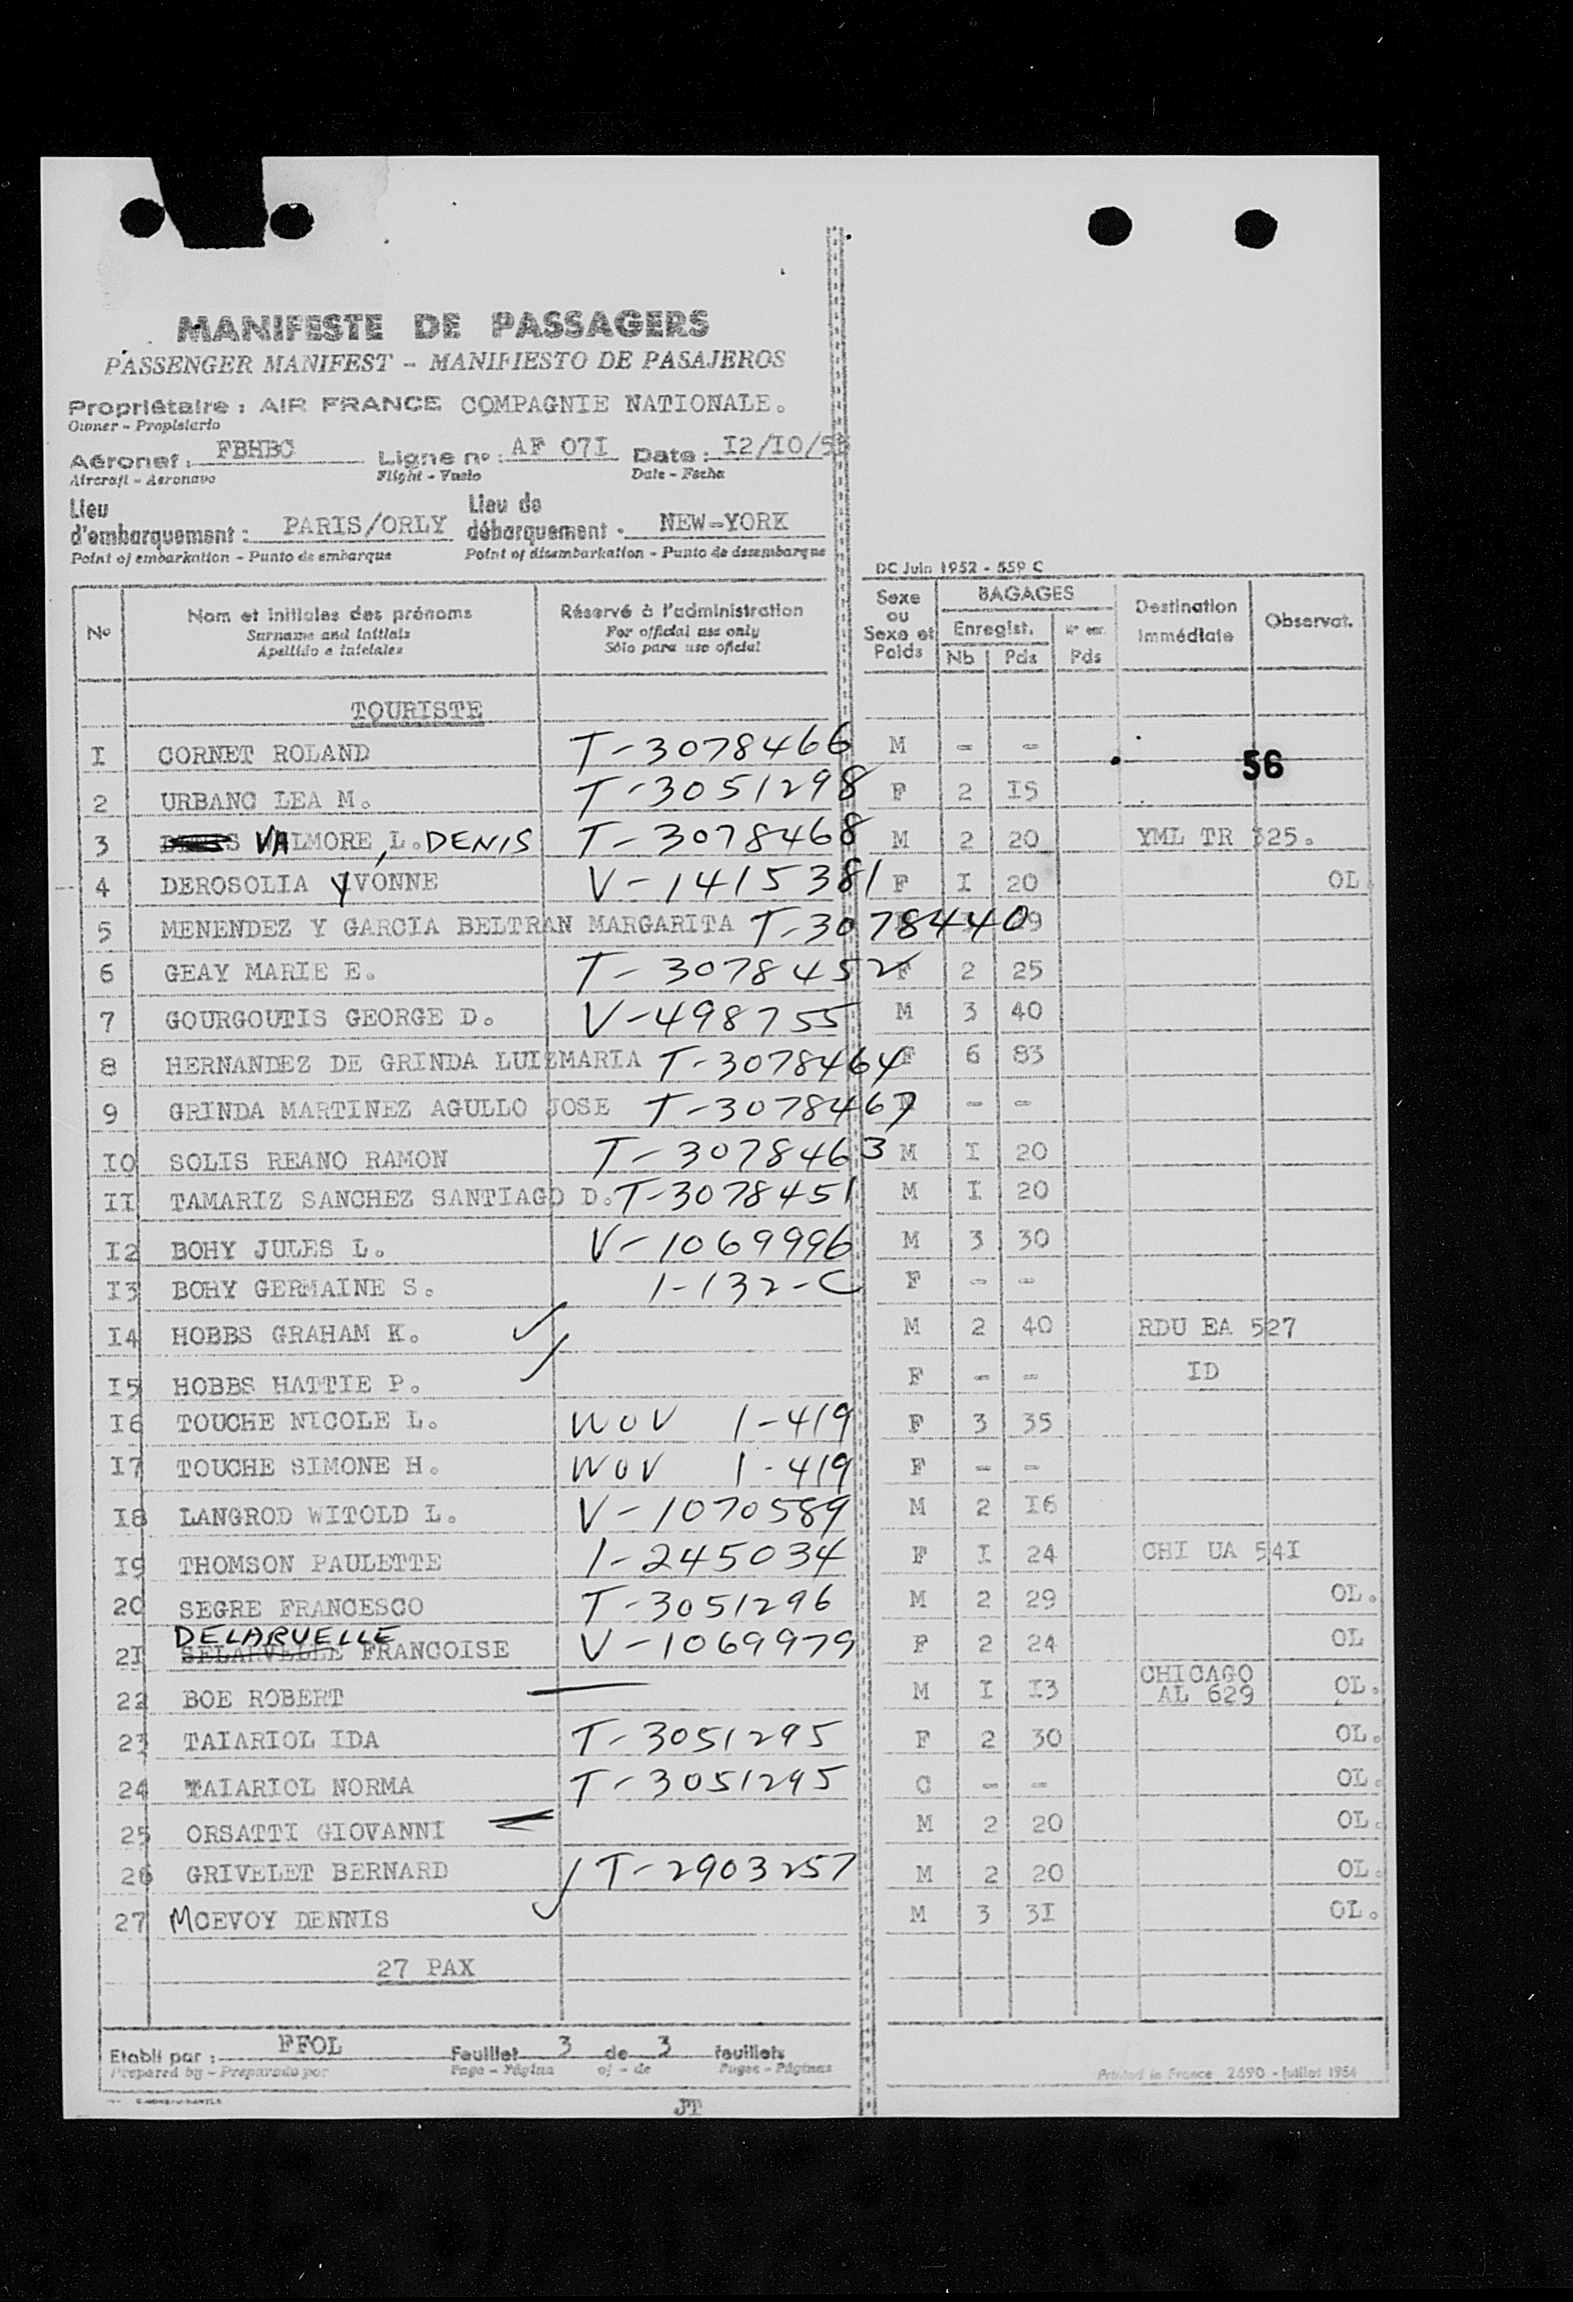 MANIFESTE DE PASSAGERS
PASSENGER MANIFEST - MANIFIESTO DE PASAJEROS
Propriétaire : AIR FRANCE COMPAGNIE NATIONALE.
Owner - Propietario
Aéronef : FBHBC Ligne nº : AF 07I Date : I2/IO/5
Aircraft - Aeronave Flight - Vuelo Date - Fecha
Lieu d'embarquement : PARIS/ORLY Lieu de débarquement : NEW-YORK
Point of embarkation - Punto de embarque Point of disembarkation - Punto de desembarque
DC Juin 1952 - 559 C
Nº Nom et initiales des prénoms Réservé à l'administration Sexe ou Sexe et Poids BAGAGES Destination immédiate Observat.
Surname and initials For official use only Enregist.
Apellido e iniciales Sólo para uso oficial Nb Pds Pds
TOURISTE
I CORNET ROLAND T-3078466 M - -
56
2 URBANC LEA M. T-3051298 F 2 I5
3 VALMORE, L. DENIS T-3078468 M 2 20 YML TR 325.
4 DEROSOLIA YVONNE V-1415381 F I 20 OL
5 MENENDEZ Y GARCIA BELTRAN MARGARITA T-3078440 9
6 GEAY MARIE E. T-3078452 F 2 25
7 GOURGOUTIS GEORGE D. V-498755 M 3 40
8 HERNANDEZ DE GRINDA LUIZMARIA T-3078464 F 6 83
9 GRINDA MARTINEZ AGULLO JOSE T-3078467 - -
IO SOLIS REANO RAMON T-3078463 M I 20
II TAMARIZ SANCHEZ SANTIAGO D. T-3078451 M I 20
I2 BOHY JULES L. V-1069996 M 3 30
I3 BOHY GERMAINE S. 1-132-C F - -
I4 HOBBS GRAHAM K. M 2 40 RDU EA 527
I5 HOBBS HATTIE P. F - - ID
I6 TOUCHE NICOLE L. WOV 1-419 F 3 35
I7 TOUCHE SIMONE H. WOV 1-419 F - -
I8 LANGROD WITOLD L. V-1070589 M 2 I6
I9 THOMSON PAULETTE 1-245034 F I 24 CHI UA 54I
20 SEGRE FRANCESCO T-3051296 M 2 29 OL.
DELARUELLE
2I SELARVELLE FRANCOISE V-1069979 F 2 24 OL
22 BOE ROBERT M I I3 CHICAGO AL 629 OL.
23 TAIARIOL IDA T-3051295 F 2 30 OL.
24 TAIARIOL NORMA T-3051295 C - - OL.
25 ORSATTI GIOVANNI M 2 20 OL.
26 GRIVELET BERNARD T-2903257 M 2 20 OL.
27 MCEVOY DENNIS M 3 3I OL.
27 PAX
Etabli par : FFOL Feuillet 3 de 3 feuillets
Prepared by - Preparado por Page - Página of - de Pages - Páginas
Printed in France 2690 - Juillet 1954
JT